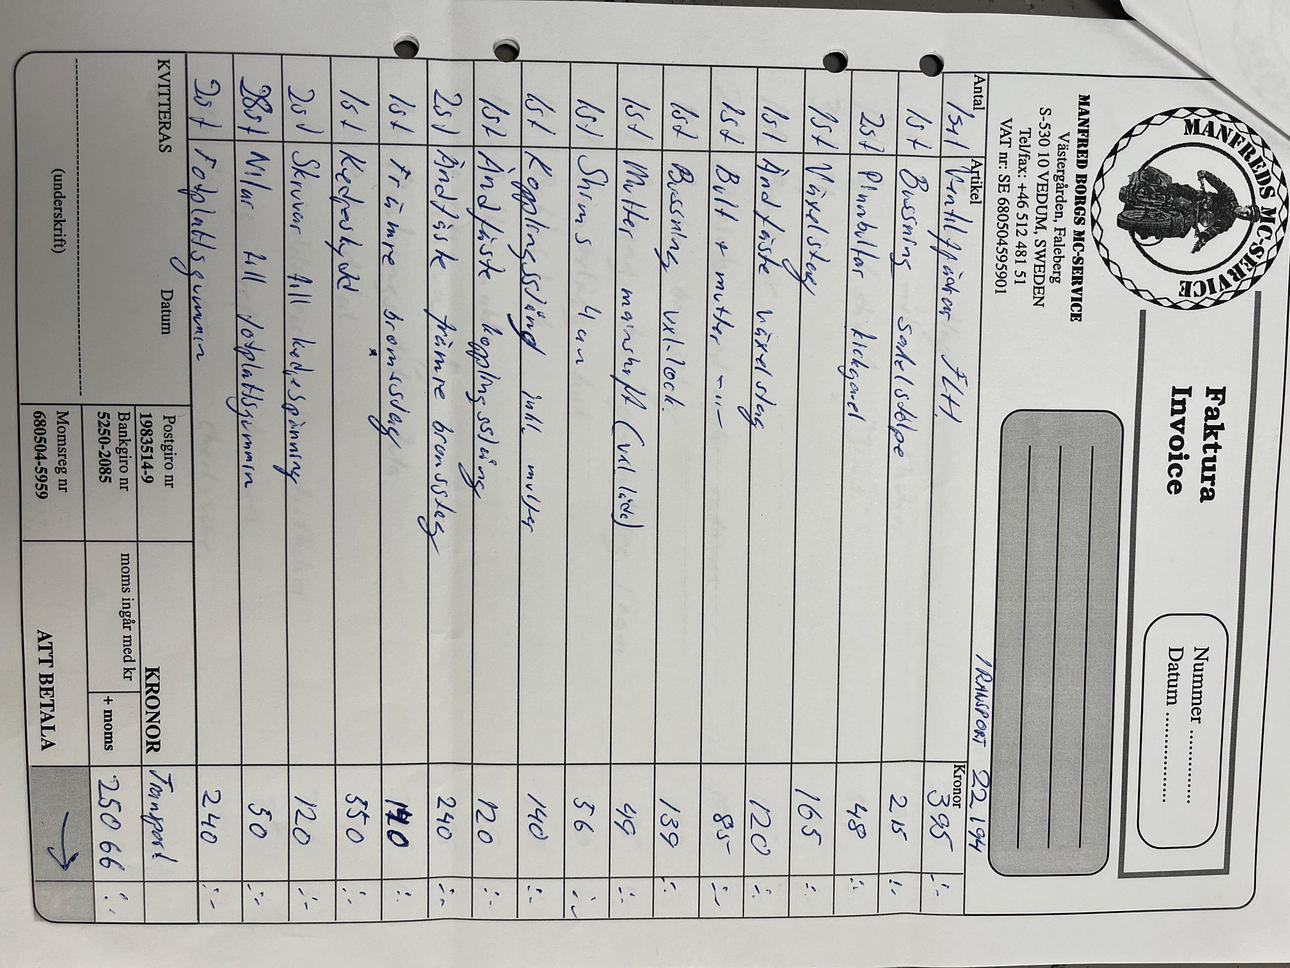 MANFREDS MC-SERVICE
Faktura
Invoice
Nummer ............
Datum ................
MANFRED BORGS MC-SERVICE
Västergården, Faleberg
S-530 10 VEDUM, SWEDEN
Tel/fax: +46 512 481 51
VAT nr: SE 680504595901
TRANSPORT 22 194
Antal Artikel Kronor
1st Ventilfjädrar FLH. 395 :-
1st Bussning sadelstolpe 215 :-
2st Pinnbultar kickgavel 48 :-
1st Växelstag 165 :-
1st Ändfäste växelstag 120 :-
1st Bult + mutter -"- 85 :-
1st Bussning vxl-lock. 139 :-
1st Mutter mainshaft (vxl låda) 49 :-
1st Shims 56 :-
1st Kopplingsstång inkl. mutter 140 :-
1st Ändfäste kopplingsstång 120 :-
2st Ändfäste främre bromsstag 240 :-
1st Främre bromsstag :-
1st Kedjeskydd 550 :-
2st Skruvar till kedjespänning 120 :-
28st Nitar till fotplattsgummin 50 :-
2st Fotplattsgummin 240 :-
KVITTERAS Datum
(underskrift)
Postgiro nr
1983514-9
Bankgiro nr
5250-2085
Momsreg nr
680504-5959
KRONOR Transport
moms ingår med kr + moms 250 66 :-
ATT BETALA